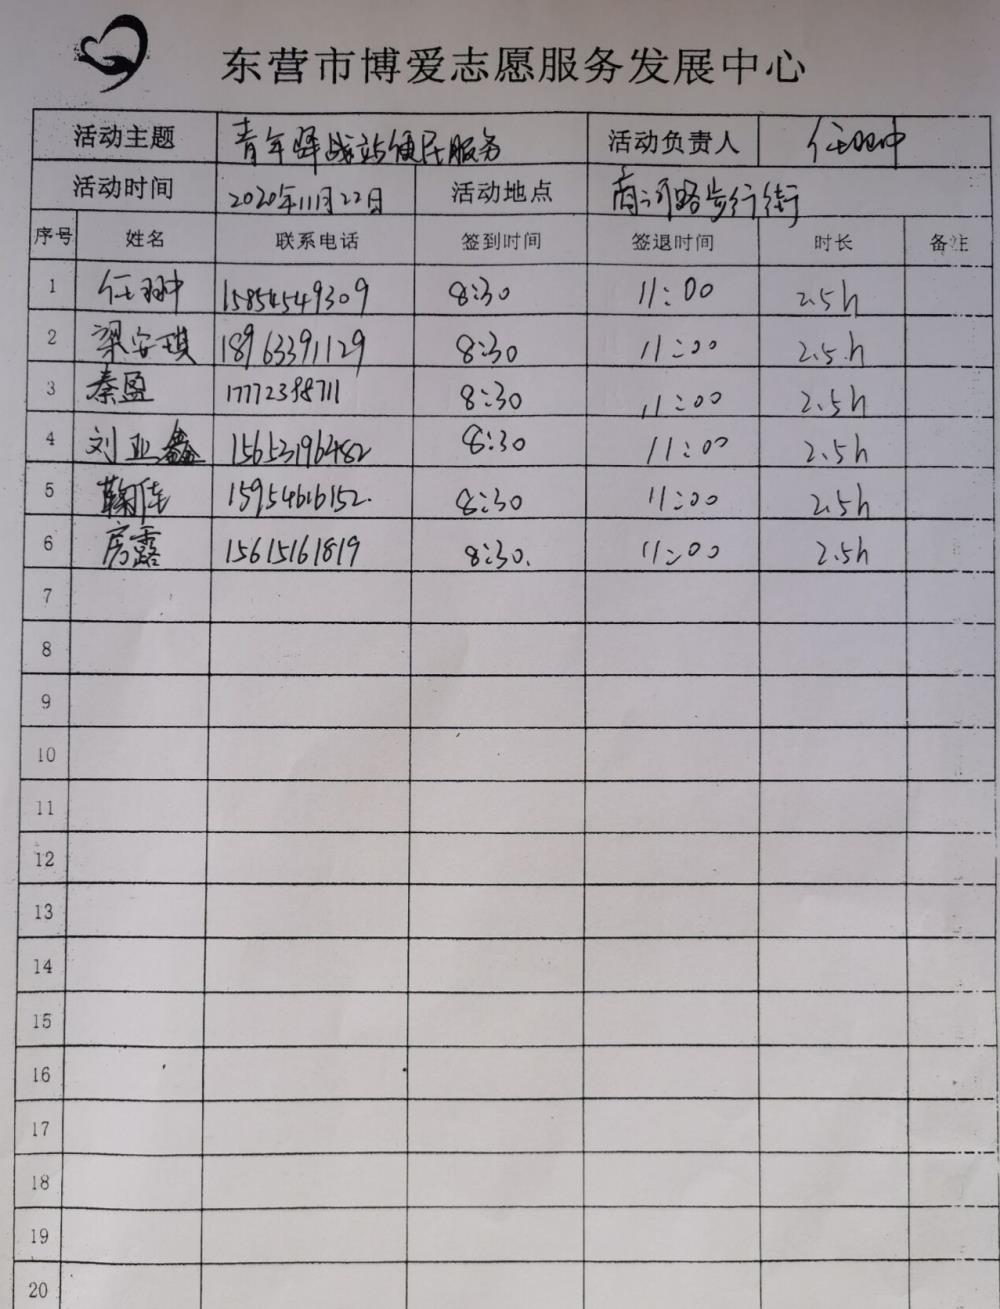 东营市博爱志愿服务发展中心
活动主题 青年驿战站便民服务 活动负责人 任翀
活动时间 2020年11月22日 活动地点 商河路步行街
序号 姓名 联系电话 签到时间 签退时间 时长 备注
1 任翀 15854549309 8:30 11:00 2.5h
2 梁安琪 18963391129 8:30 11:00 2.5h
3 秦盈 17772388711 8:30 11:00 2.5h
4 刘亚鑫 15653196482 8:30 11:00 2.5h
5 鞠佳 15954616152. 8:30 11:00 2.5h
6 房露 15615161819 8:30. 11:00 2.5h
7
8
9
10
11
12
13
14
15
16
17
18
19
20